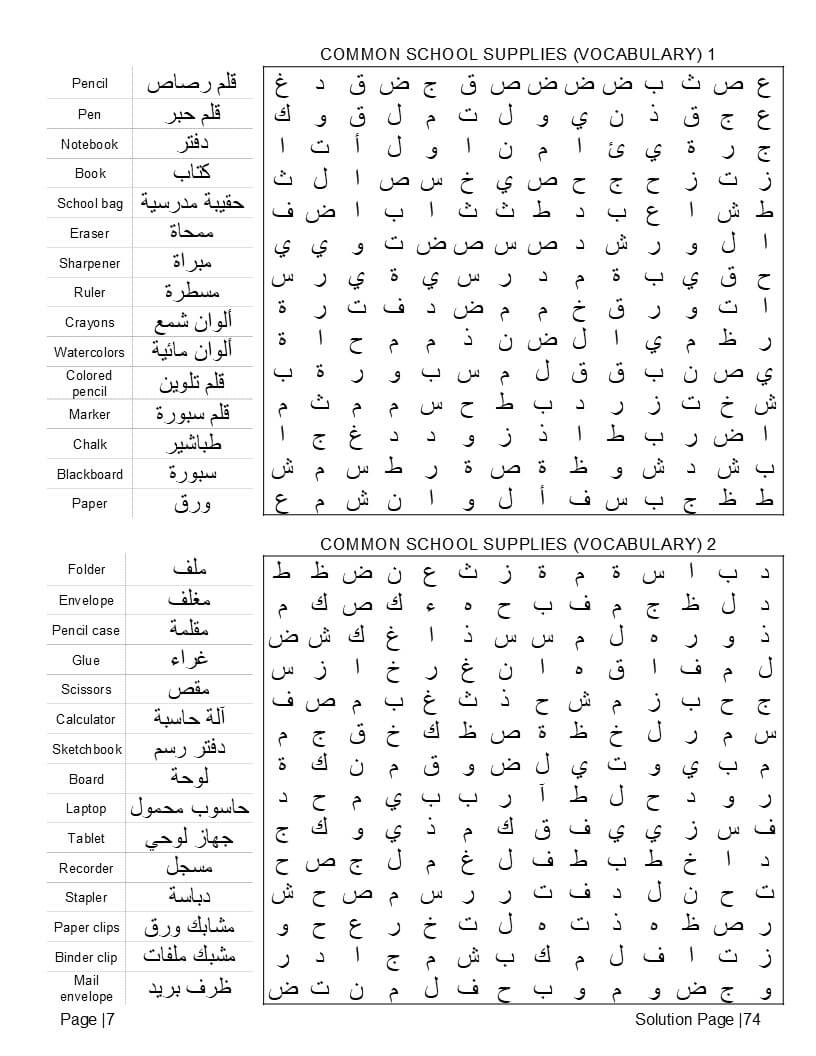 COMMON SCHOOL SUPPLIES (VOCABULARY) 1
Pencil قلم رصاص
Pen قلم حبر
Notebook دفتر
Book كتاب
School bag حقيبة مدرسية
Eraser ممحاة
Sharpener مبراة
Ruler مسطرة
Crayons ألوان شمع
Watercolors ألوان مائية
Colored
pencil قلم تلوين
Marker قلم سبورة
Chalk طباشير
Blackboard سبورة
Paper ورق
ع ص ث ب ض ض ض ص ق ج ض ق د غ
ع ج ق ذ ن ي و ل ت م ل ق و ك
ج ر ة ي ئ ا م ن ا و ل أ ت ا
ز ت ز ح ج ح ص ي خ س ص ا ل ث
ط ش ا ع ب د ط ث ث ا ب ا ض ف
ا ل و ر ش د ص س ص ض ت و ي ي
ح ق ي ب ة م د ر س ي ة ي ر س
ا ت و ر ق خ م م ض د ف ت ر ة
ر ظ م ي ا ل ض ن ذ م م ح ا ة
ي ص ن ب ق ق ل م س ب و ر ة ب
ش خ ت ز ر د ب ط ح س م م ث م
ا ض ر ب ط ا ذ ز و د د غ ج ا
ب ش د ش و ظ ة ص ة ر ط س م ش
ط ظ ج ب س ف أ ل و ا ن ش م ع
COMMON SCHOOL SUPPLIES (VOCABULARY) 2
Folder ملف
Envelope مغلف
Pencil case مقلمة
Glue غراء
Scissors مقص
Calculator آلة حاسبة
Sketchbook دفتر رسم
Board لوحة
Laptop حاسوب محمول
Tablet جهاز لوحي
Recorder مسجل
Stapler دباسة
Paper clips مشابك ورق
Binder clip مشبك ملفات
Mail
envelope ظرف بريد
د ب ا س ة م ة ز ث ع ن ض ظ ط
د ل ظ ج م ف ب ح ه ء ك ص ك م
ذ و ر ه ل م س س ذ ا غ ك ش ض
ل م ف ا ق ه ا ن غ ر خ ا ز س
ج ح ب ز م ش ح ذ ث غ ب م ص ف
س م ر ل خ ظ ة ص ظ ك خ ق ج م
م ب ي و ت ي ل ض و ق م ن ك ة
ر و د ح ل ط آ ر ب ب ي م ح د
ف س ز ي ي ف ق ك م ذ ي و ك ج
د ا خ ط ب ط ف ل غ م ل ج ص ح
ت ح ن ل د ف ت ر ر س م ص ح ش
ر ص ظ ه ذ ت ه ل ت خ ر ع ح و
ز ت ا ف ل م ك ب ش م ج ا د ر
و ج ض و م و ب ح ف ل م ن ت ض
Page |7
Solution Page |74